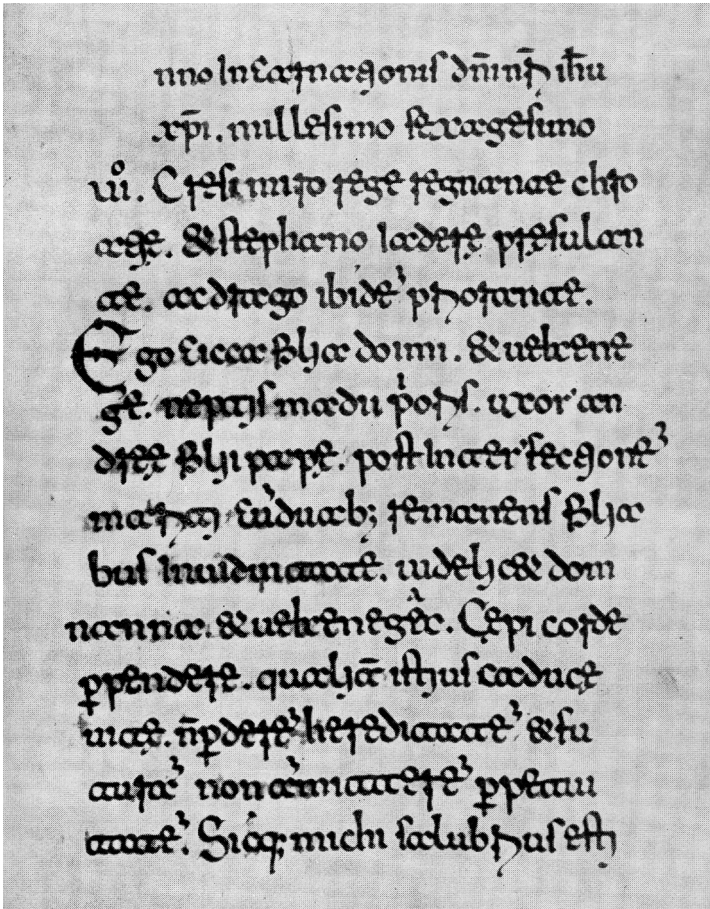 nno Incarnationis dñi nr̃i ih̃u
xp̃i. millesimo sexagesimo
uiº. Cresimiro rege regnante chro
atię. & stephano iadere presulan
te. ac drago ibidē priorante.
Ego cicca filia doimi. & uekene
ge. neptis madii p'oris. uxor an
dreę filii papę. post interfectionē
mariti cū duab; remanens filia
bus In uiduitate. uidelicet dom
nanna. & uekenega. Cepi corde
ꝑpendere. qualit̄ istius caducę
uitę. ñ ꝑderē hereditatē & fu
turā non amitterē ꝑpetui
tatē. Sicq; michi salubrius esti